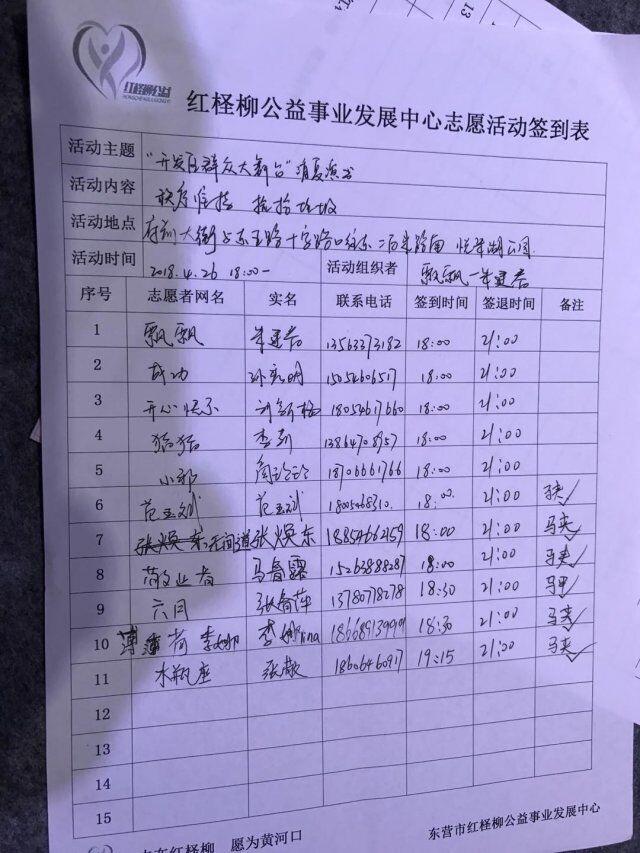 13
红柽柳公益
HONGCHENGLIUGONGYI
红柽柳公益事业发展中心志愿活动签到表
活动主题 "开发区群众大舞台"消夏演出
活动内容 秩序维持 捡拾垃圾
活动地点 大街与东王路十字路口往东二百米路南 悦来湖公园
活动时间 2018.4.26 18:00— 活动组织者 飘飘—
序号 志愿者网名 实名 联系电话 签到时间 签退时间 备注
1 飘飘 13563373182 18:00 21:00
2 成功 15054606517 18:00 21:00
3 开心快乐 18054617660 18:00 21:00
4 猪猪 李莉 13864708957 18:00 21:00
5 小郭 周玲玲 18706661766 18:00 21:00
6 范玉斌 范玉斌 18005468310 18:00 21:00 马夹
7 无间道 张焕东 18854662159 18:00 21:00 马夹
8 敬业者 马春露 15263888287 18:00 21:00 马夹
9 六月 张春萍 13780778278 18:30 21:00 马甲
10 薄荷 李娜 李娜lina 18668913999 18:30 21:00 马夹
11 水瓶座 张敏 18606460917 19:15 21:00 马夹
12
13
14
15
红柽柳 愿为黄河口
东营市红柽柳公益事业发展中心